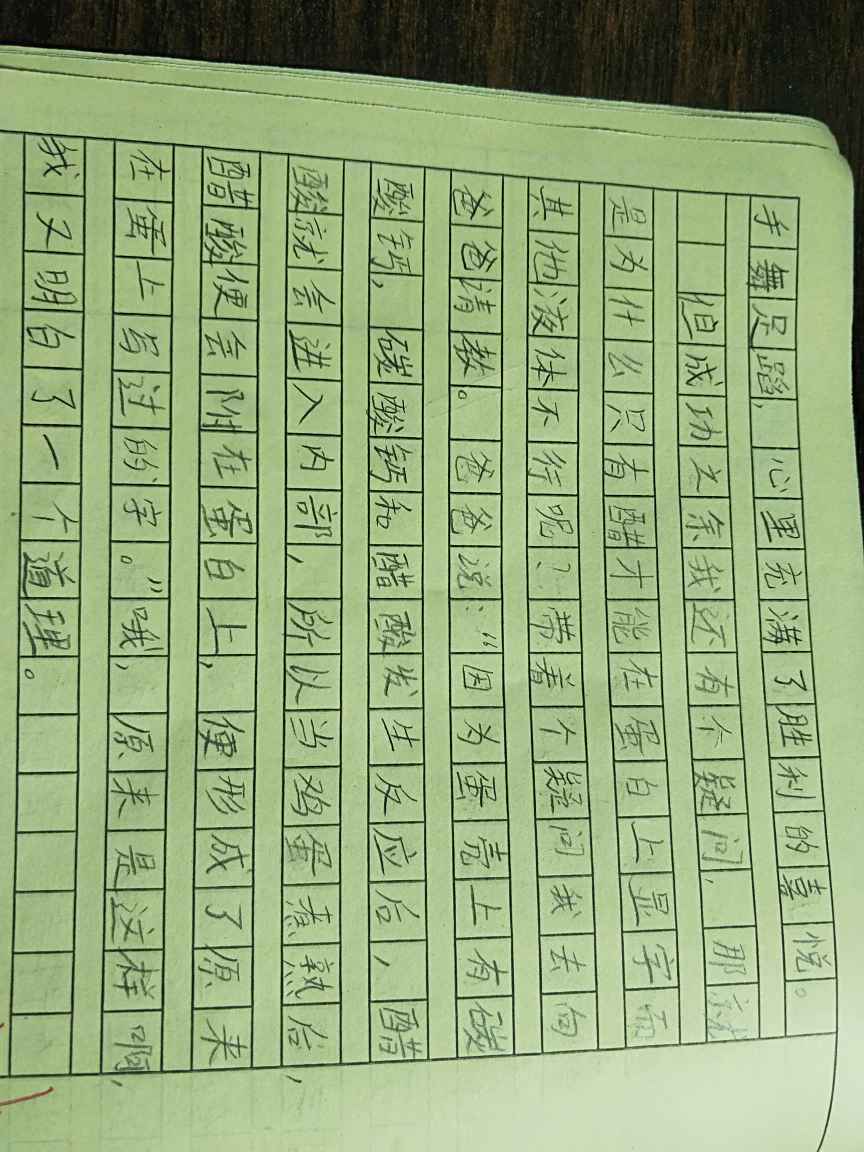 手舞足蹈，心里充满了胜利的喜悦。
但成功之余我还有个疑问，那就
是为什么只有醋才能在蛋白上显字而
其他液体不行呢？带着个疑问我去向
爸爸请教。爸爸说：“因为蛋壳上有碳
酸钙，碳酸钙和醋酸发生反应后，醋
酸就会进入内部，所以当鸡蛋煮熟后，
醋酸便会附在蛋白上，便形成了原来
在蛋上写过的字。”哦，原来是这样啊，
我又明白了一个道理。